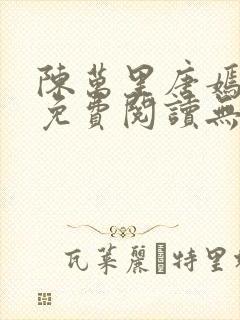 陳萬里唐嫣
免費閱讀無
瓦萊麗·特里